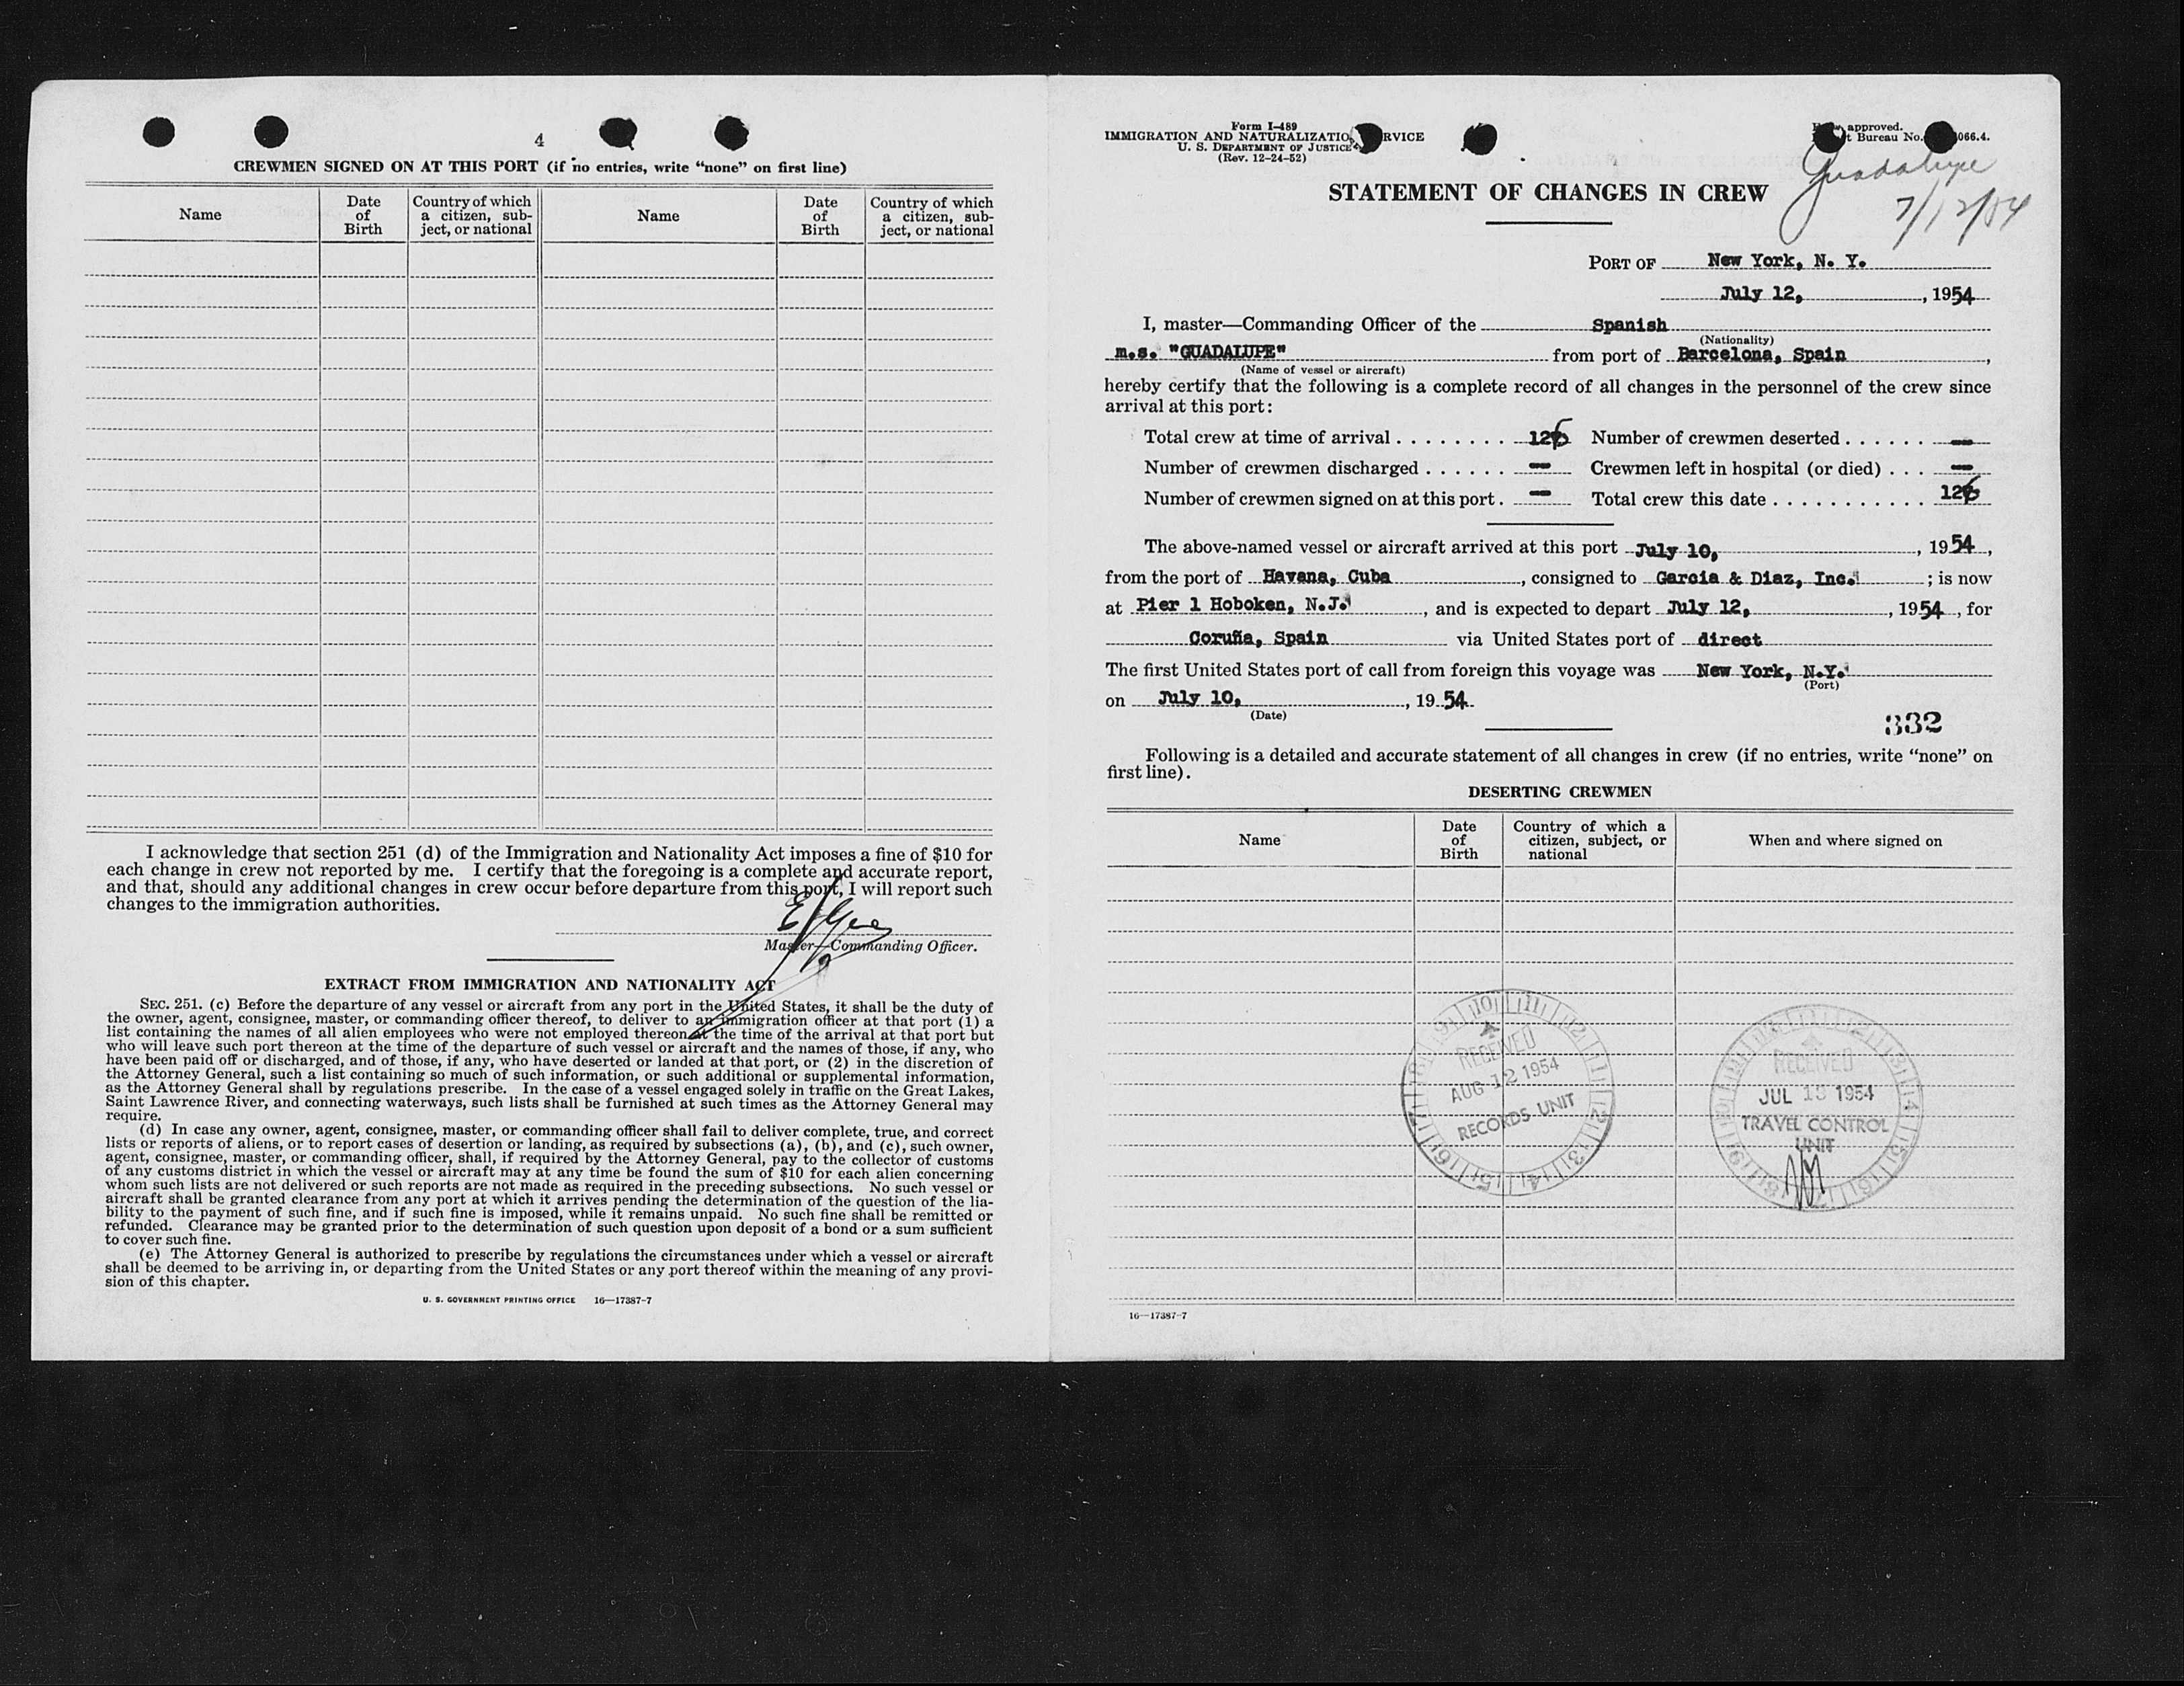 4
CREWMEN SIGNED ON AT THIS PORT (if no entries, write "none" on first line)
Name
Date of Birth
Country of which a citizen, subject, or national
Name
Date of Birth
Country of which a citizen, subject, or national
I acknowledge that section 251 (d) of the Immigration and Nationality Act imposes a fine of $10 for
each change in crew not reported by me. I certify that the foregoing is a complete and accurate report,
and that, should any additional changes in crew occur before departure from this port, I will report such
changes to the immigration authorities.
Master—Commanding Officer.
EXTRACT FROM IMMIGRATION AND NATIONALITY ACT
SEC. 251. (c) Before the departure of any vessel or aircraft from any port in the United States, it shall be the duty of
the owner, agent, consignee, master, or commanding officer thereof, to deliver to an immigration officer at that port (1) a
list containing the names of all alien employees who were not employed thereon at the time of the arrival at that port but
who will leave such port thereon at the time of the departure of such vessel or aircraft and the names of those, if any, who
have been paid off or discharged, and of those, if any, who have deserted or landed at that port, or (2) in the discretion of
the Attorney General, such a list containing so much of such information, or such additional or supplemental information,
as the Attorney General shall by regulations prescribe. In the case of a vessel engaged solely in traffic on the Great Lakes,
Saint Lawrence River, and connecting waterways, such lists shall be furnished at such times as the Attorney General may
require.
(d) In case any owner, agent, consignee, master, or commanding officer shall fail to deliver complete, true, and correct
lists or reports of aliens, or to report cases of desertion or landing, as required by subsections (a), (b), and (c), such owner,
agent, consignee, master, or commanding officer, shall, if required by the Attorney General, pay to the collector of customs
of any customs district in which the vessel or aircraft may at any time be found the sum of $10 for each alien concerning
whom such lists are not delivered or such reports are not made as required in the preceding subsections. No such vessel or
aircraft shall be granted clearance from any port at which it arrives pending the determination of the question of the lia-
bility to the payment of such fine, and if such fine is imposed, while it remains unpaid. No such fine shall be remitted or
refunded. Clearance may be granted prior to the determination of such question upon deposit of a bond or a sum sufficient
to cover such fine.
(e) The Attorney General is authorized to prescribe by regulations the circumstances under which a vessel or aircraft
shall be deemed to be arriving in, or departing from the United States or any port thereof within the meaning of any provi-
sion of this chapter.
U. S. GOVERNMENT PRINTING OFFICE 16—17387-7
Form I-489
IMMIGRATION AND NATURALIZATIO RVICE
U. S. DEPARTMENT OF JUSTICE
(Rev. 12-24-52)
approved.
t Bureau No. 066.4.
Guadalupe
7/12/54
STATEMENT OF CHANGES IN CREW
PORT OF New York, N. Y.
July 12, , 1954
I, master—Commanding Officer of the Spanish
(Nationality)
m.s. "GUADALUPE" from port of Barcelona, Spain ,
(Name of vessel or aircraft)
hereby certify that the following is a complete record of all changes in the personnel of the crew since
arrival at this port:
Total crew at time of arrival . . . . . . . . 126 Number of crewmen deserted . . . . . . —
Number of crewmen discharged . . . . . . — Crewmen left in hospital (or died) . . . —
Number of crewmen signed on at this port . — Total crew this date . . . . . . . . . . . . 126
The above-named vessel or aircraft arrived at this port July 10, , 1954 ,
from the port of Havana, Cuba , consigned to Garcia & Diaz, Inc. ; is now
at Pier 1 Hoboken, N.J. , and is expected to depart July 12, , 1954 , for
Coruña, Spain via United States port of direct
The first United States port of call from foreign this voyage was New York, N.Y.
(Port)
on July 10, , 1954
(Date)
332
Following is a detailed and accurate statement of all changes in crew (if no entries, write "none" on
first line).
DESERTING CREWMEN
Name
Date of Birth
Country of which a citizen, subject, or national
When and where signed on
RECEIVED
AUG 12 1954
RECORDS UNIT
RECEIVED
JUL 13 1954
TRAVEL CONTROL
UNIT
16—17387-7